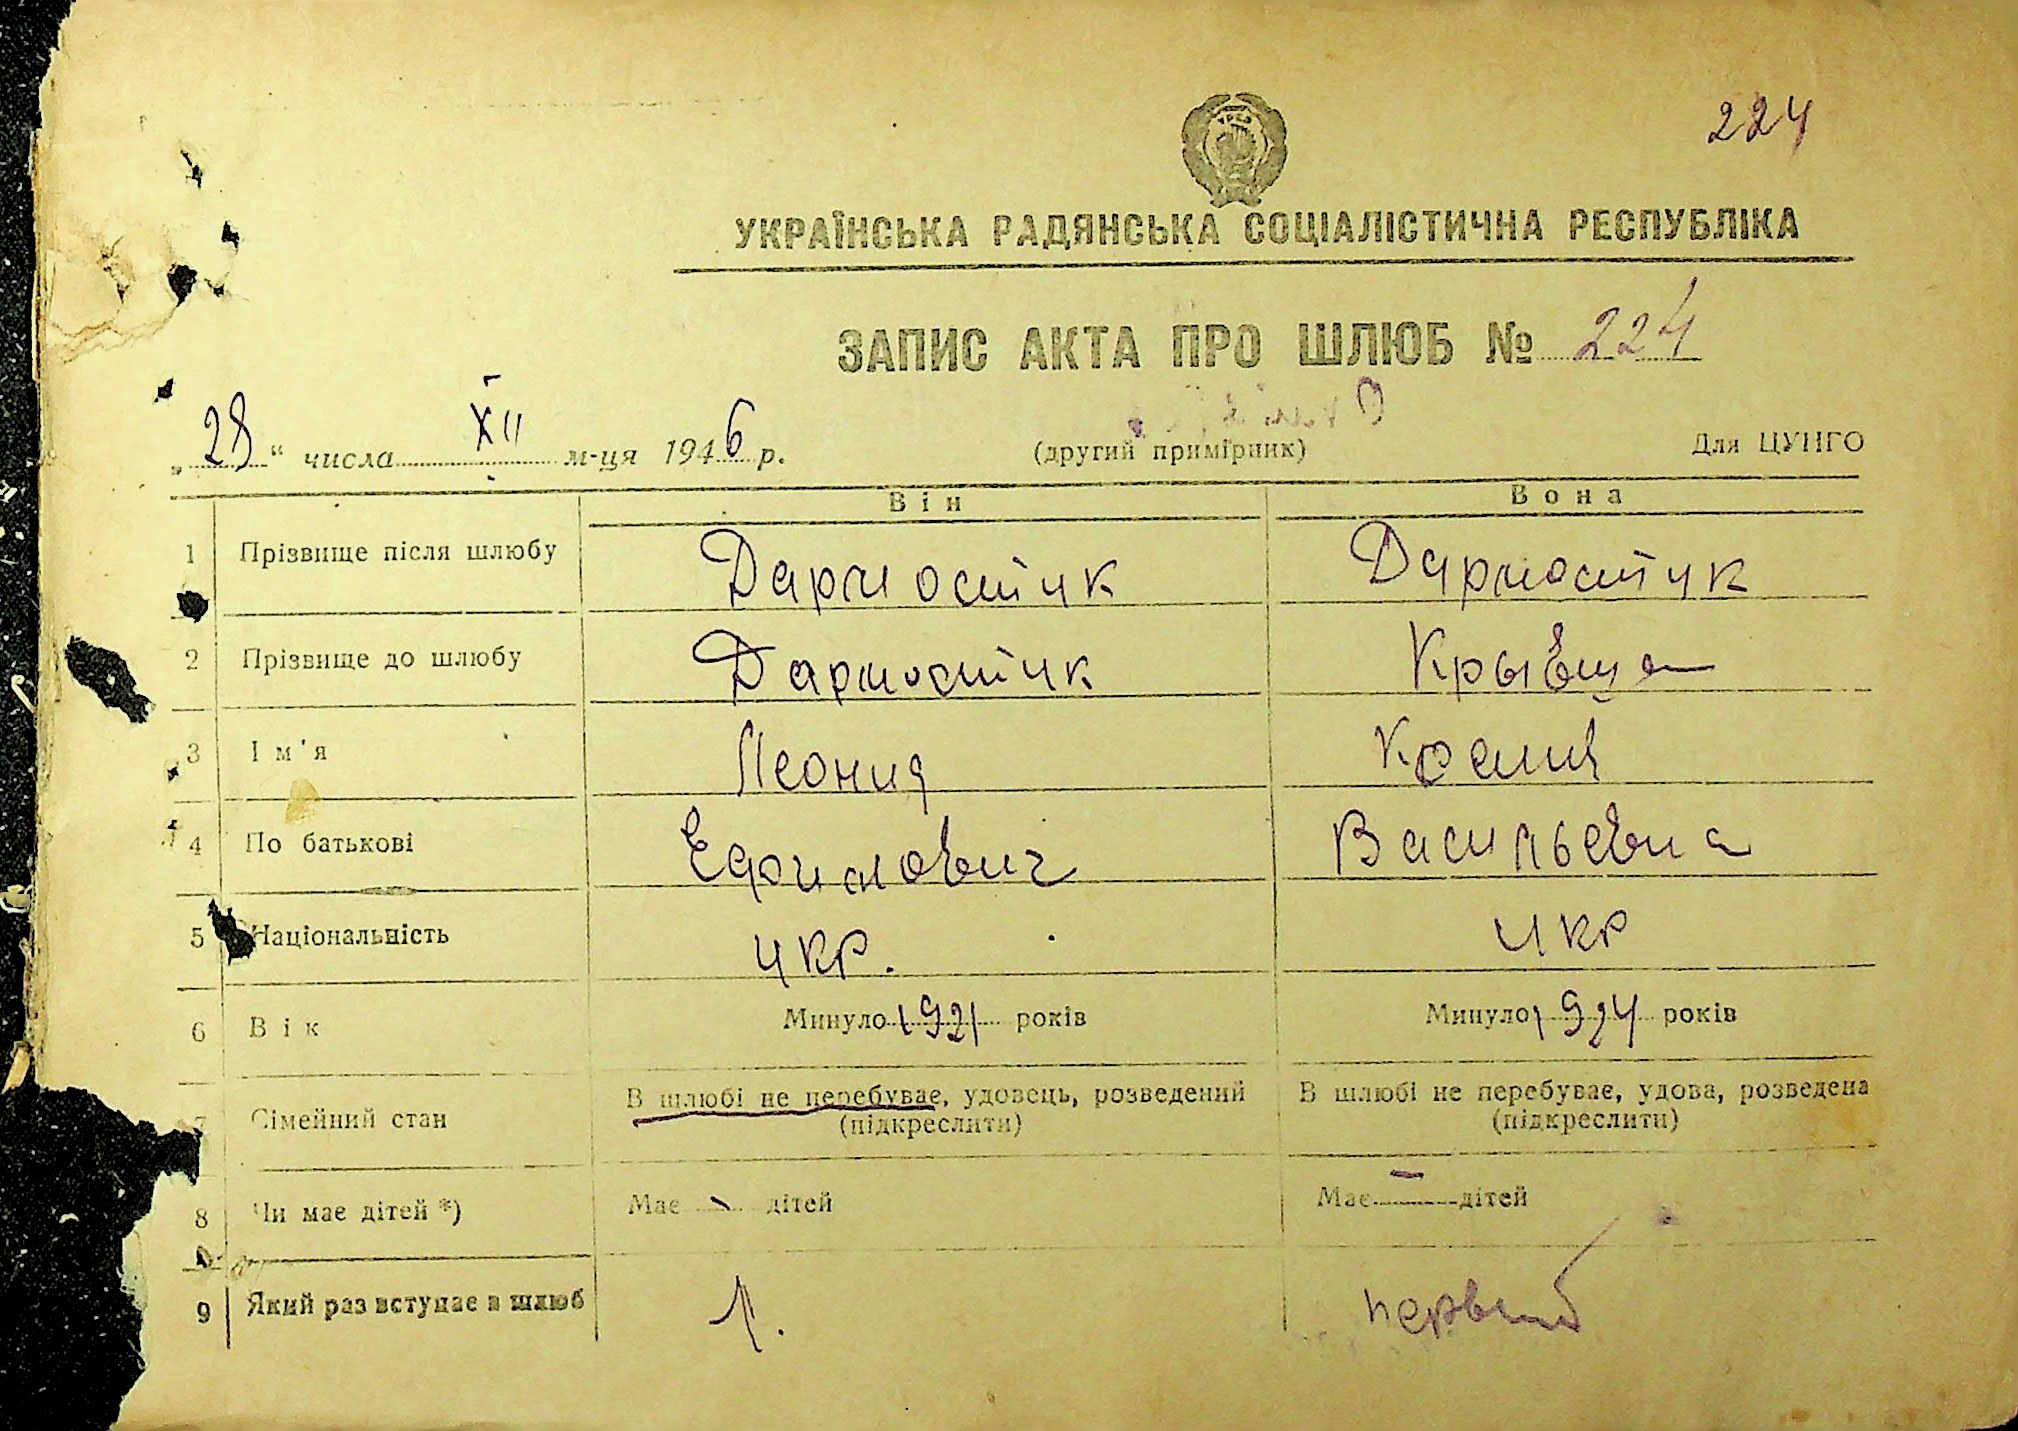 224
УКРАЇНСЬКА РАДЯНСЬКА СОЦІАЛІСТИЧНА РЕСПУБЛІКА
ЗАПИС АКТА ПРО ШЛЮБ № 224
„28“ числа XII м-ця 1946 р. (другий примірник) Для ЦУНГО
Він Вона
1 Прізвище після шлюбу Дармостук Дармостук
2 Прізвище до шлюбу Дармостук Крывша
3 Ім'я Леонид
4 По батькові Ефимович Васильевна
5 Національність укр. укр
6 Вік Минуло 1921 років Минуло 1924 років
7 Сімейний стан В шлюбі не перебуває, удовець, розведений В шлюбі не перебуває, удова, розведена
(підкреслити) (підкреслити)
8 Чи має дітей *) Має - дітей Має - дітей
9 Який раз вступає в шлюб 1. первый